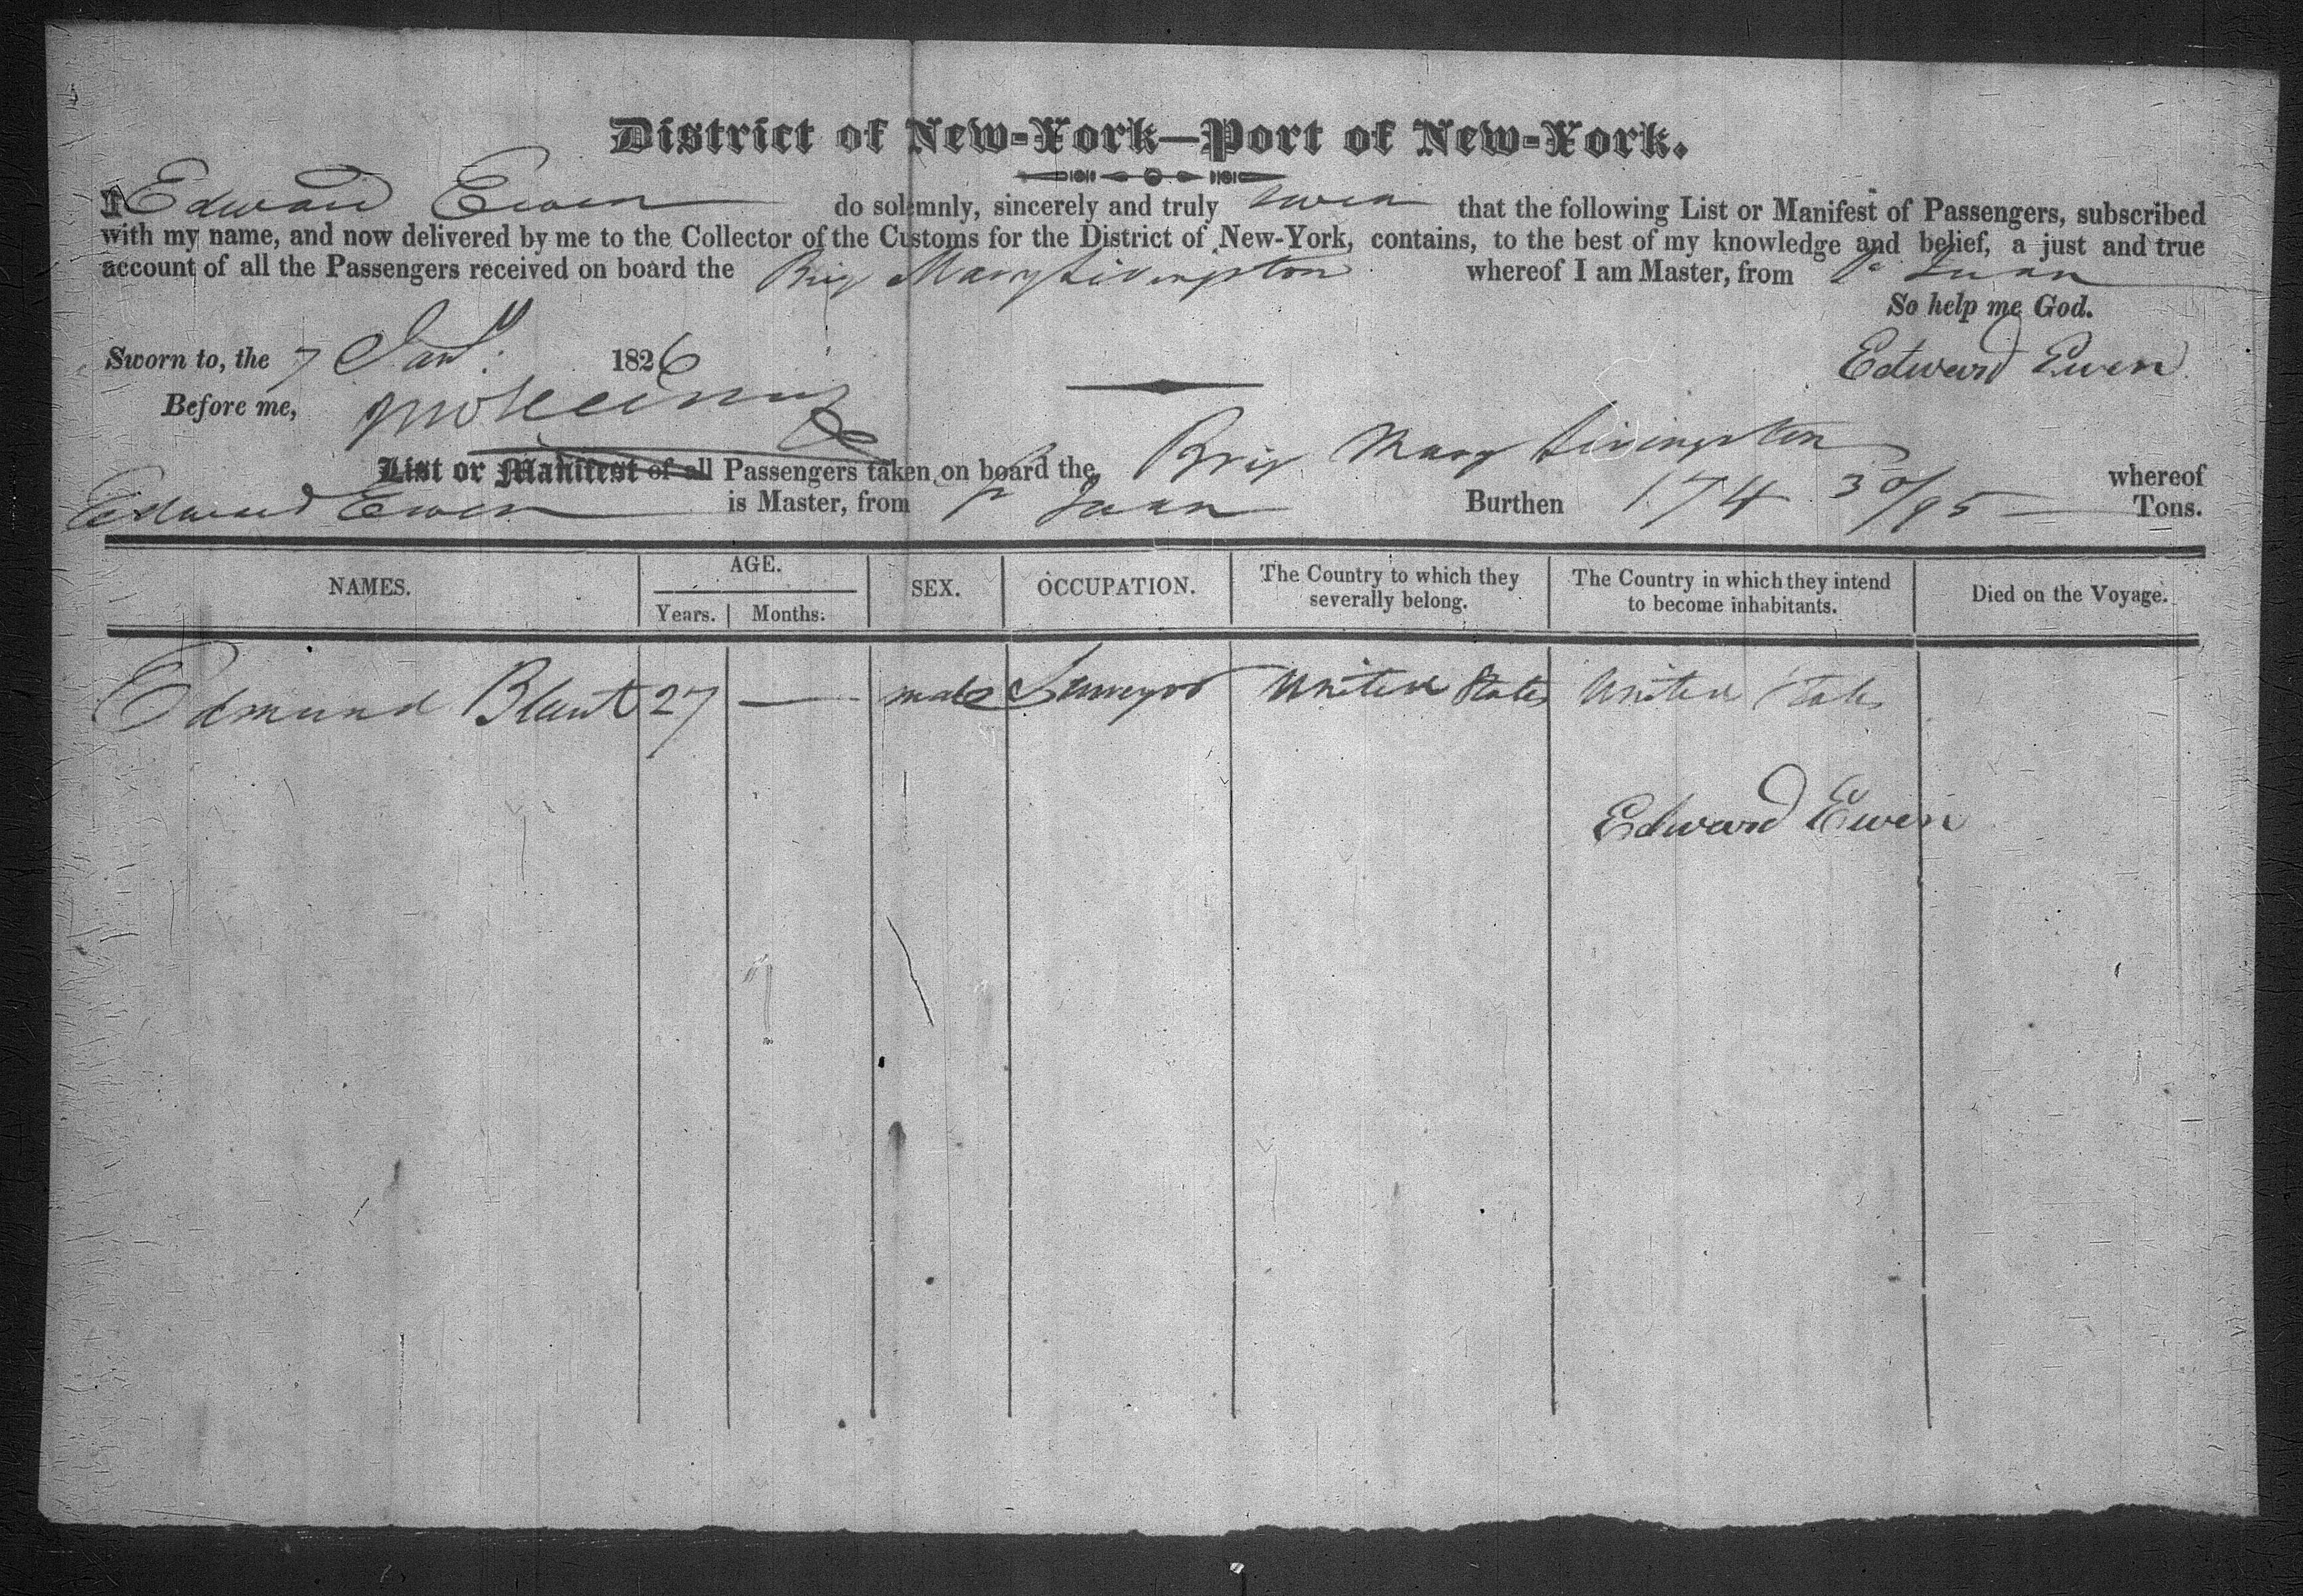 District of New-York—Port of New-York.
I Edward Ewen do solemnly, sincerely and truly swear that the following List or Manifest of Passengers, subscribed
with my name, and now delivered by me to the Collector of the Customs for the District of New-York, contains, to the best of my knowledge and belief, a just and true
account of all the Passengers received on board the Brig Mary Livingston whereof I am Master, from Juan
So help me God.
Sworn to, the 7 Jany. 1826 Edward Ewen
Before me,
List or Manifest of all Passengers taken on board the Brig Mary Livingston whereof
Edward Ewen is Master, from Juan Burthen 174 30/95 Tons.
NAMES. AGE. SEX. OCCUPATION. The Country to which they severally belong. The Country in which they intend to become inhabitants. Died on the Voyage.
Years. Months.
Edmund Blunt 27 — male Surveyor United States United States
Edward Ewen